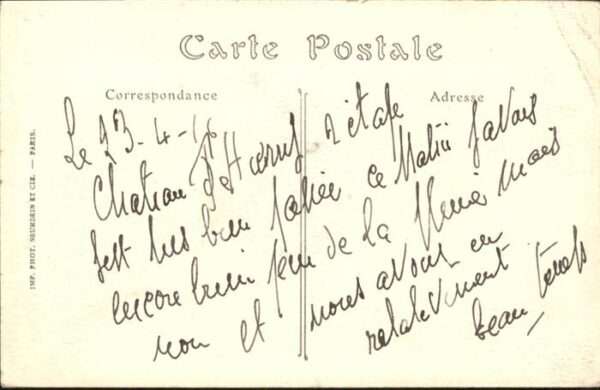 Carte Postale
Correspondance
Adresse
Le 23-4-16
Chateau d' 2 étape
s'est très bien passée ce Matin j'avais
encore bien peur de la mais
non et nous avons eu
relativement
beau temps
IMP. PHOT. NEURDEIN ET CIE. — PARIS.